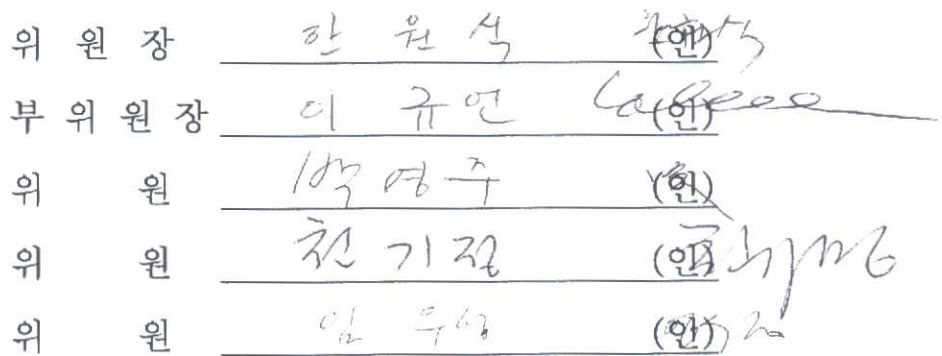 위 원 장 한 원 석 (인)
부 위 원 장 이 규 언 (인)
위 원 백 영 주 (인)
위 원 천 기 정 (인)
위 원 임 우 성 (인)